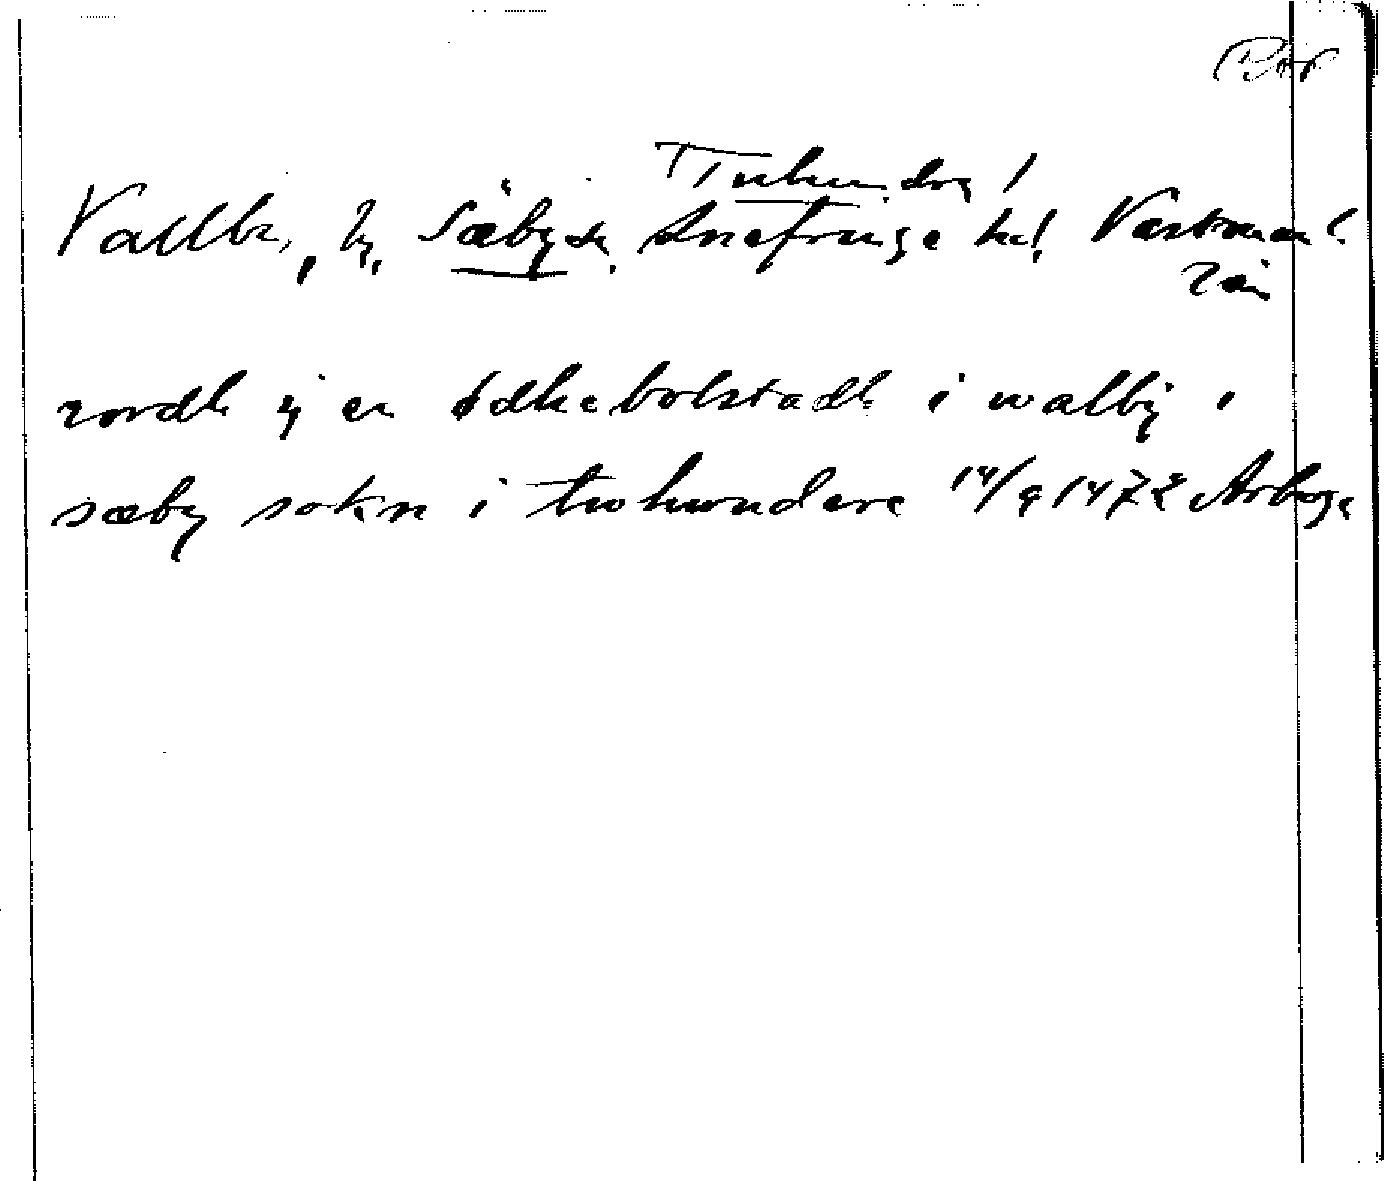 Tuhundra!
Vallby, by, Säby sn. Snefringe hd! Västmanl.
jordh ij en ödhebolstadh i walbij i
sæby sokn i twhundere 14/9 1472 Arboga